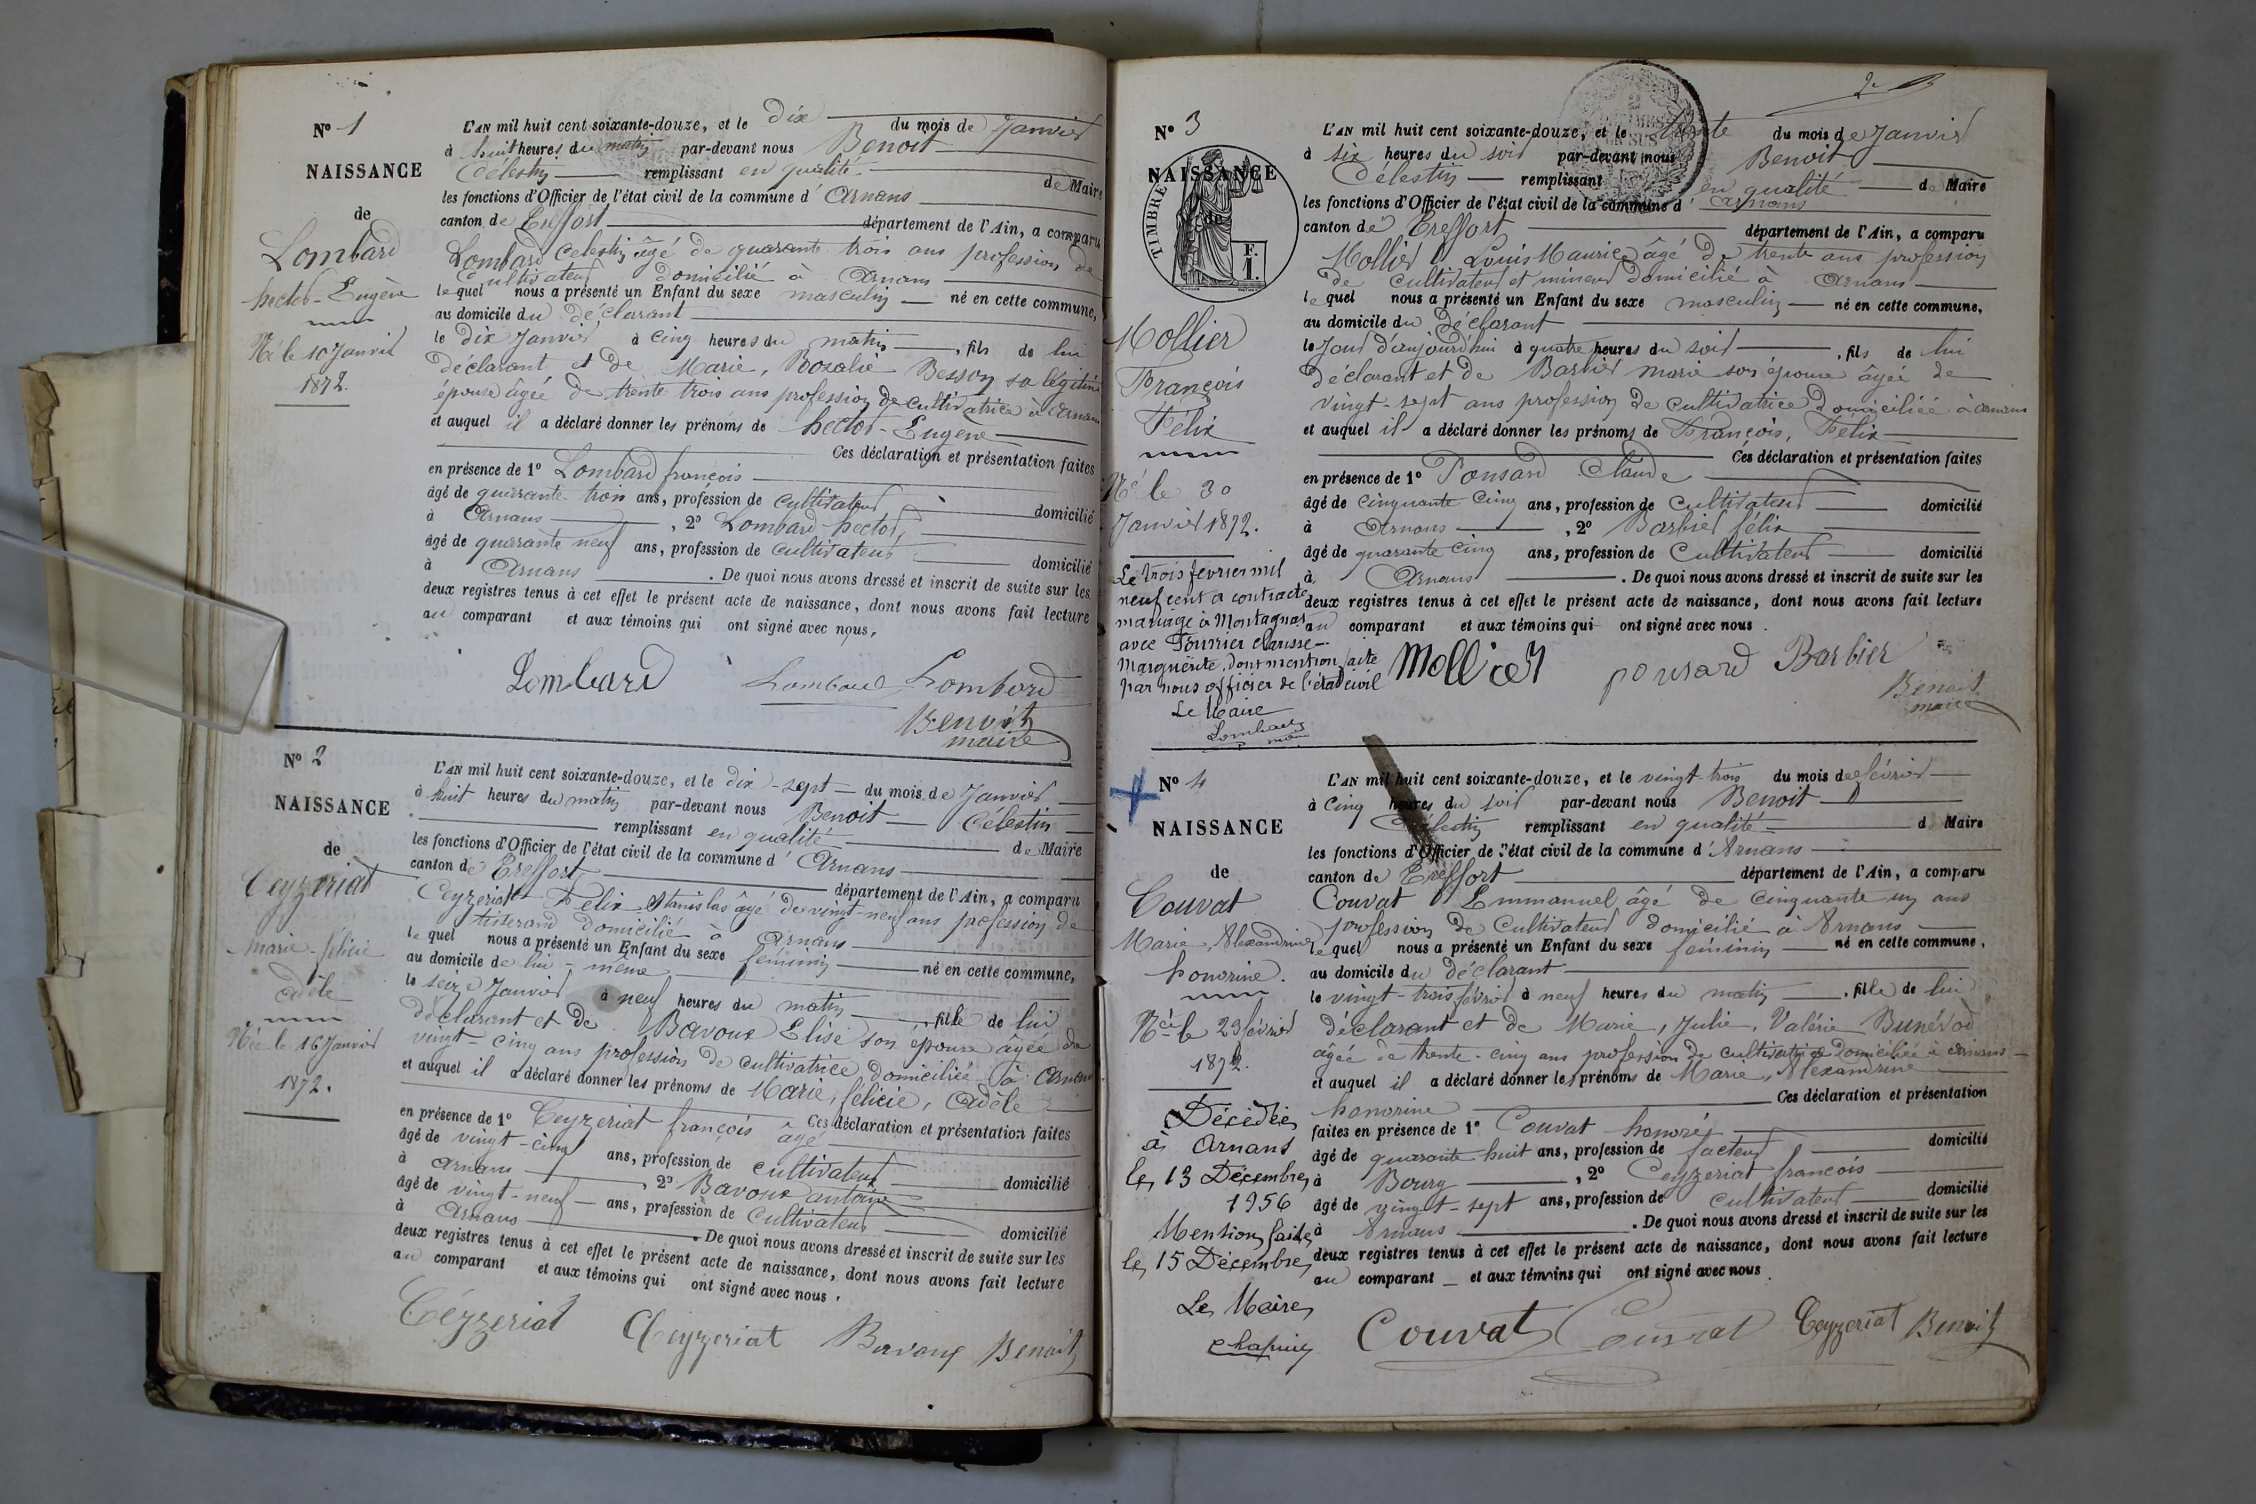 N° 1
NAISSANCE
de
Lombard
hector-Eugène
Né le 10 Janvier
1872.
L'AN mil huit cent soixante-douze, et le dix du mois de Janvier
à huit heures du matin par-devant nous Benoit
Célestin remplissant en qualité de Maire
les fonctions d'Officier de l'état civil de la commune d' Arnans
canton de Treffort département de l'Ain, a comparu
Lombard Celestin âgé de quarante trois ans profession de
cultivateur domicilié à Arnans
le quel nous a présenté un Enfant du sexe masculin né en cette commune,
au domicile du déclarant
le dix Janvier à cinq heures du matin, fils de lui
déclarant et de Marie, Rosalie Besson sa légitime
épouse âgée de trente trois ans profession de cultivatrice à Arnans
et auquel il a déclaré donner les prénoms de hector-Eugène
Ces déclaration et présentation faites
en présence de 1° Lombard françois
âgé de quarante-trois ans, profession de cultivateur domicilié
à Arnans, 2° Lombard hector,
âgé de quarante neuf ans, profession de cultivateur domicilié
à Arnans. De quoi nous avons dressé et inscrit de suite sur les
deux registres tenus à cet effet le présent acte de naissance, dont nous avons fait lecture
au comparant et aux témoins qui ont signé avec nous,
Lombard Lombard Lombard
Benoit
maire
N° 2
NAISSANCE
de
Ceyzeriat
marie-félicie
Adèle
Née le 16 Janvier
1872.
L'AN mil huit cent soixante-douze, et le dix-sept du mois de Janvier
à huit heures du matin par-devant nous Benoit Célestin
remplissant en qualité de Maire
les fonctions d'Officier de l'état civil de la commune d' Arnans
canton de Treffort département de l'Ain, a comparu
Ceyzeriat Felix Stanislas âgé de vingt-neuf ans profession de
tisserand domicilié à Arnans
le quel nous a présenté un Enfant du sexe féminin né en cette commune,
au domicile de lui-même
le seize Janvier à neuf heures du matin, fille de lui
déclarant et de Bavoux Elise son épouse âgée de
vingt-cinq ans profession de cultivatrice domiciliée à Arnans
et auquel il a déclaré donner les prénoms de Marie, félicie, Adèle
Ces déclaration et présentation faites
en présence de 1° Ceyzeriat françois âgé
âgé de vingt-cinq ans, profession de cultivateur domicilié
à Arnans, 2° Bavoux antoine
âgé de vingt-neuf ans, profession de cultivateur domicilié
à Arnans. De quoi nous avons dressé et inscrit de suite sur les
deux registres tenus à cet effet le présent acte de naissance, dont nous avons fait lecture
au comparant et aux témoins qui ont signé avec nous.
Céyzeriat Ceyzeriat Bavoux Benoit
2e
N° 3
NAISSANCE
de
TIMBRE
F.
1.
Mollier
François
Félix
Né le 30
Janvier 1872.
Le trois fevrier mil
neuf cent a contracté
mariage à Montagnat
avec Fournier Clarisse
Marguerite, dont mention faite
par nous officier de l'état civil
Le Maire
Lombard
L'AN mil huit cent soixante-douze, et le trente du mois de Janvier
à six heures du soir par-devant nous Benoit
Célestin remplissant en qualité de Maire
les fonctions d'Officier de l'état civil de la commune d' Arnans
canton de Treffort département de l'Ain, a comparu
Mollier Louis Maurice âgé de trente ans profession
de cultivateur et mineur domicilié à Arnans
le quel nous a présenté un Enfant du sexe masculin né en cette commune,
au domicile du déclarant
le Jour d'aujourd'hui à quatre heures du soir, fils de lui
déclarant et de Barbier marie son épouse âgée de
vingt-sept ans profession de cultivatrice domiciliée à arnans
et auquel il a déclaré donner les prénoms de François, Félix
Ces déclaration et présentation faites
en présence de 1° Ponsard Claude
âgé de cinquante cinq ans, profession de cultivateur domicilié
à Arnans, 2° Barbier félix
âgé de quarante cinq ans, profession de Cultivateur domicilié
à Arnans. De quoi nous avons dressé et inscrit de suite sur les
deux registres tenus à cet effet le présent acte de naissance, dont nous avons fait lecture
au comparant et aux témoins qui ont signé avec nous.
Mollier ponsard Barbier
Benoit
maire
N° 4
NAISSANCE
de
Couvat
Marie Alexandrine
honorine.
Née le 23 février
1872.
Décédée
à Arnans
le 13 Décembre
1956
Mention faite
le 15 Décembre
Le Maire
L'AN mil huit cent soixante-douze, et le vingt-trois du mois de février
à cinq heures du soir par-devant nous Benoit
Célestin remplissant en qualité de Maire
les fonctions d'Officier de l'état civil de la commune d' Arnans
canton de Treffort département de l'Ain, a comparu
Couvat Emmanuel âgé de cinquante un ans
profession de Cultivateur domicilié à Arnans
le quel nous a présenté un Enfant du sexe féminin né en cette commune,
au domicile du déclarant
le vingt-trois février à neuf heures du matin, fille de lui
déclarant et de Marie, Julie, Valérie
âgée de trente-cinq ans profession de cultivatrice domiciliée à arnans
et auquel il a déclaré donner les prénoms de Marie, Alexandrine
honorine Ces déclaration et présentation
faites en présence de 1° Couvat honoré
âgé de quarante huit ans, profession de facteur domicilié
à Bourg, 2° Ceyzeriat françois
âgé de vingt-sept ans, profession de cultivateur domicilié
à Arnans. De quoi nous avons dressé et inscrit de suite sur les
deux registres tenus à cet effet le présent acte de naissance, dont nous avons fait lecture
au comparant et aux témoins qui ont signé avec nous.
Couvat Couvat Ceyzeriat Benoit